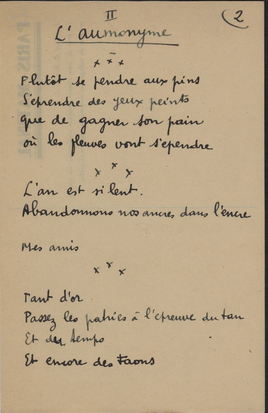 II
2
L'aumonyme
x x x
Plutôt se pendre aux pins
S'éprendre des yeux peints
que de gagner son pain
où les fleuves vont s'épendre
x x x
L'an est si lent.
Abandonnons nos ancres dans l'encre
Mes amis
x x x
Tant d'or
Passez les patries à l'épreuve du tan
Et des temps
Et encore des Faons